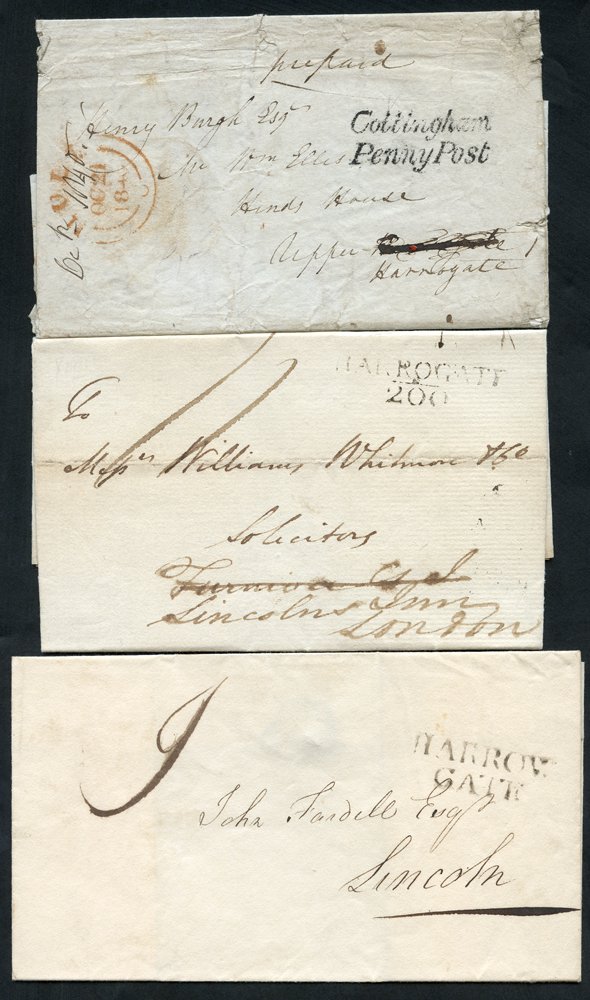 prepaid
Henry Burgh Esqr
Cottingham
Penny Post
Wm Ellis
Hinds House
Upper
Harrogate
OC 20
184
HARROGATE
200
To
Messrs Williams Whitmore & Co
Solicitors
Furnivals Inn
Lincolns Inn
London
HARROW
GATE
John Fardell Esqr
Lincoln